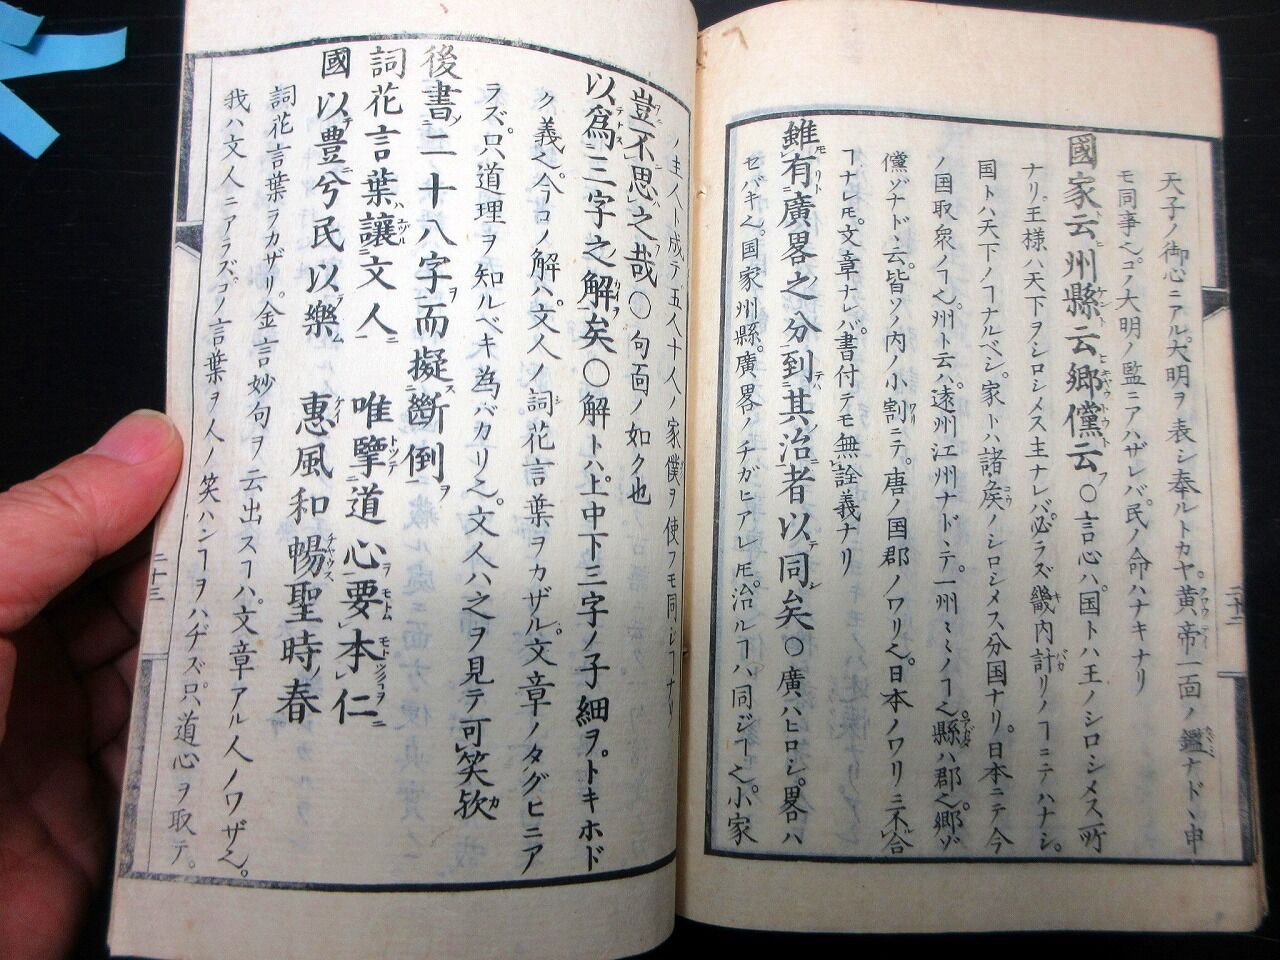 天子ノ御心ニアル。大明ヲ表シ奉ルトカヤ。黄帝一面ノ鑑ナドヽ申
モ同事也。コノ大明ノ監ニアハザレバ。民ノ命ハナキナリ
國家云州縣云郷儻云。〇言心ハ。国トハ王ノシロシメス所
ナリ。王様ハ天下ヲシロシメス主ナレバ。必ラズ畿内計リノヿニテハナシ。
国トハ天下ノヿナルベシ。家トハ諸矦ノシロシメス分国ナリ。日本ニテ今
ノ国取衆ノヿ也。州ト云ハ。遠州江州ナドヽテ。一州ミミノヿ也。縣ハ郡也。郷ゾ
儻ゾナド云。皆ソノ内ノ小割ニテ。唐ノ国郡ノワリ也。日本ノワリニ不合
ヿナレ𪜈。文章ナレバ。書付テモ無詮義ナリ
雖有廣畧之分到其治者以同矣〇廣ハヒロシ。畧ハ
セバキ也。国家州縣。廣畧ノチガヒアレ𪜈。治ルヿハ同ジヿ也。小家
ノ主人ト成テ五人十人ノ家僕ヲ使フモ同シヿナリ
豈不思之哉〇句面ノ如ク也
以為三字之解矣〇解トハ。上中下三字ノ子細ヲ。トキホド
ク義也。今コノ解ハ。文人ノ詞花言葉ヲカザル。文章ノタグヒニア
ラズ。只道理ヲ知ルベキ為バカリ也。文人ハ之ヲ見テ可笑欤
後書二十八字而擬斷倒
詞花言葉讓文人 唯擥道心要本仁
國以豊兮民以樂 惠風和暢聖時春
詞花言葉ヲカザリ。金言妙句ヲ云出スヿハ。文章アル人ノワザ也。
我ハ文人ニアラズ。コノ言葉ヲ人ノ笑ハンヿヲハヂズ。只道心ヲ取テ。
二十二
二十三